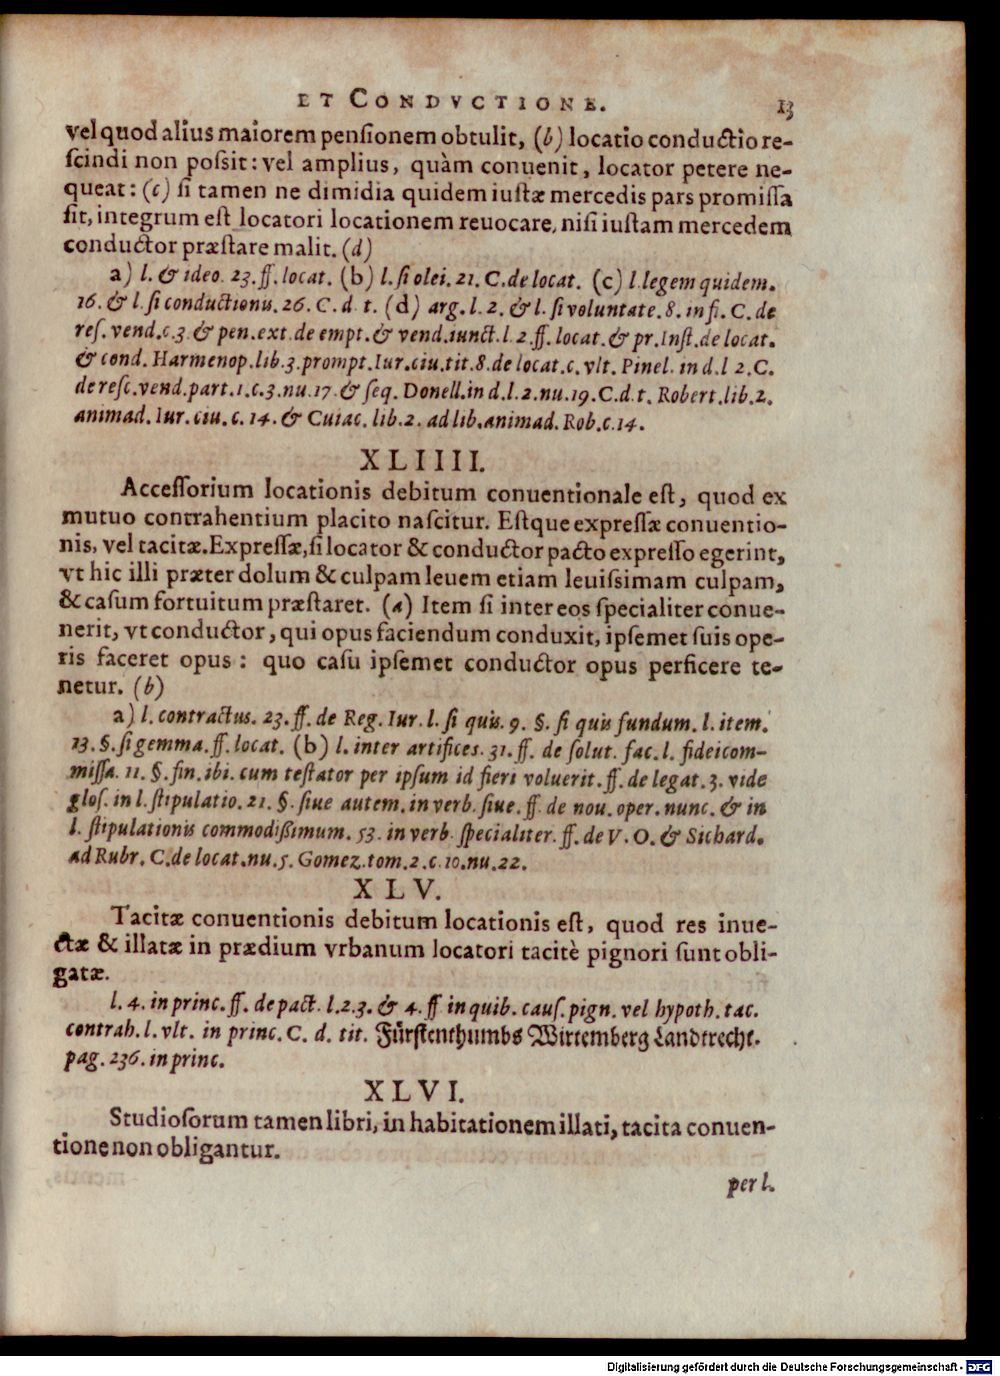 ET CONDVCTIONE. 13
vel quod alius maiorem pensionem obtulit, (b) locatio conductio re-
scindi non possit: vel amplius, quàm conuenit, locator petere ne-
queat: (c) si tamen ne dimidia quidem iustæ mercedis pars promissa
sit, integrum est locatori locationem reuocare, nisi iustam mercedem
conductor præstare malit. (d)
a) l. & ideo. 23. ff. locat. (b) l. si olei. 21. C. de locat. (c) l. legem quidem.
16. & l. si conductionis. 26. C. d. t. (d) arg. l. 2. & l. si voluntate. 8. in fi. C. de
res. vend. c. 3 & pen. ext. de empt. & vend. iunct. l. 2. ff. locat. & pr. Inst. de locat.
& cond. Harmenop. lib. 3. prompt. Iur. ciu. tit. 8. de locat. c. vlt. Pinel. in d. l 2. C.
de resc. vend. part. 1. c. 3. nu. 17. & seq. Donell. in d. l. 2. nu. 19. C. d. t. Robert. lib. 2.
animad. Iur. ciu. c. 14. & Cuiac. lib. 2. ad lib. animad. Rob. c. 14.
XLIIII.
Accessorium locationis debitum conuentionale est, quod ex
mutuo contrahentium placito nascitur. Estque expressæ conuentio-
nis, vel tacitæ. Expressæ, si locator & conductor pacto expresso egerint,
vt hic illi præter dolum & culpam leuem etiam leuissimam culpam,
& casum fortuitum præstaret. (a) Item si inter eos specialiter conue-
nerit, vt conductor, qui opus faciendum conduxit, ipsemet suis ope-
ris faceret opus: quo casu ipsemet conductor opus perficere te-
netur. (b)
a) l. contractus. 23. ff. de Reg. Iur. l. si quis. 9. §. si quis fundum. l. item.
13. §. si gemma. ff. locat. (b) l. inter artifices. 31. ff. de solut. fac. l. fideicom-
missa. 11. §. fin. ibi. cum testator per ipsum id fieri voluerit. ff. de legat. 3. vide
glos. in l. stipulatio. 21. §. siue autem. in verb. siue. ff. de nou. oper. nunc. & in
l. stipulationis commodißimum. 53. in verb. specialiter. ff. de V. O. & Sichard.
ad Rubr. C. de locat. nu. 5. Gomez. tom. 2. c. 10. nu. 22.
XLV.
Tacitæ conuentionis debitum locationis est, quod res inue-
ctæ & illatæ in prædium vrbanum locatori tacitè pignori sunt obli-
gatæ.
l. 4. in princ. ff. de pact. l. 2. 3. & 4. ff in quib. caus. pign. vel hypoth. tac.
contrah. l. vlt. in princ. C. d. tit. Fürstenthumbs Wirtemberg Landtrecht.
pag. 236. in princ.
XLVI.
Studiosorum tamen libri, in habitationem illati, tacita conuen-
tione non obligantur.
per l.
Digitalisierung gefördert durch die Deutsche Forschungsgemeinschaft - DFG